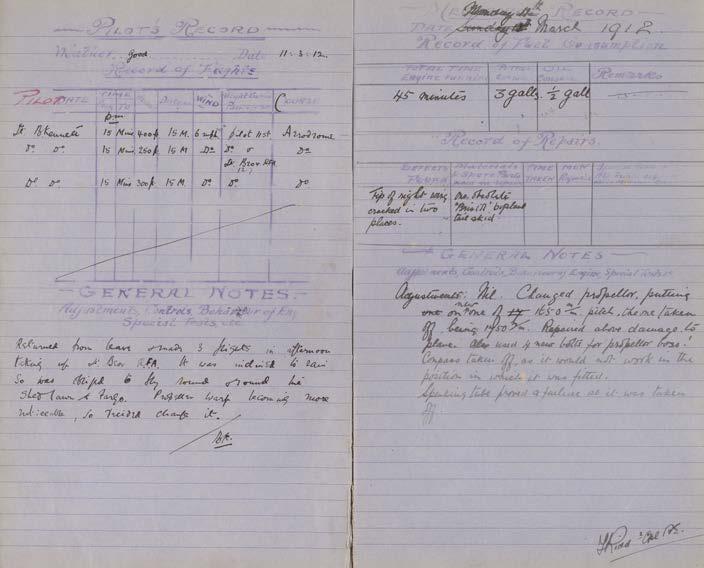 PILOT'S RECORD
Weather.. good Date 11-3-12.
Record of Flights
PILOT DATE TIME WIND COURSE
pm
Lt. B.Kennett 15 Mins 400ft 15 M. 6 mph pilot Aerodrome
Do Do 15 Mins 250ft 15 M Do Do Do
Lt. Brox. RFA
Do Do 15 Mins 300ft 15 M. Do Do Do
GENERAL NOTES.
Adjustments, Controls, Behaviour of Eng
Special Tests, etc
Returned from leave & made 3 flights in afternoon
taking up Lt Brox R.F.A. It was inclined to rain
so was obliged to fly round & round the
Shed Lawn & Fargo. Propeller warp becoming more
noticeable, so decided change it.
BK.
RECORD
DATE Monday 11th March 1912
Record of Fuel Consumption
TOTAL TIME Remarks
ENGINE RUNNING
45 minutes 3 galls. ½ gall
Record of Repairs.
DEFECTS Materials TIME MEN
FOUND & Spare Parts TAKEN
used in repair
Tip of right wing one obsolete
cracked in two "Bristol" biplane
places. tail skid
GENERAL NOTES
Adjustments, Controls, Behaviour of Engine, Special Tests
Adjustments: Nil. Changed propellor, putting
new
on one of 1650 m/m pitch, the one taken
off being 1450 m/m. Repaired above damage to
plane. Also used 4 new bolts for propellor boss.
Compass taken off, as it would not work in the
position in which it was fitted.
Speaking tube proved a failure so it was taken
off.